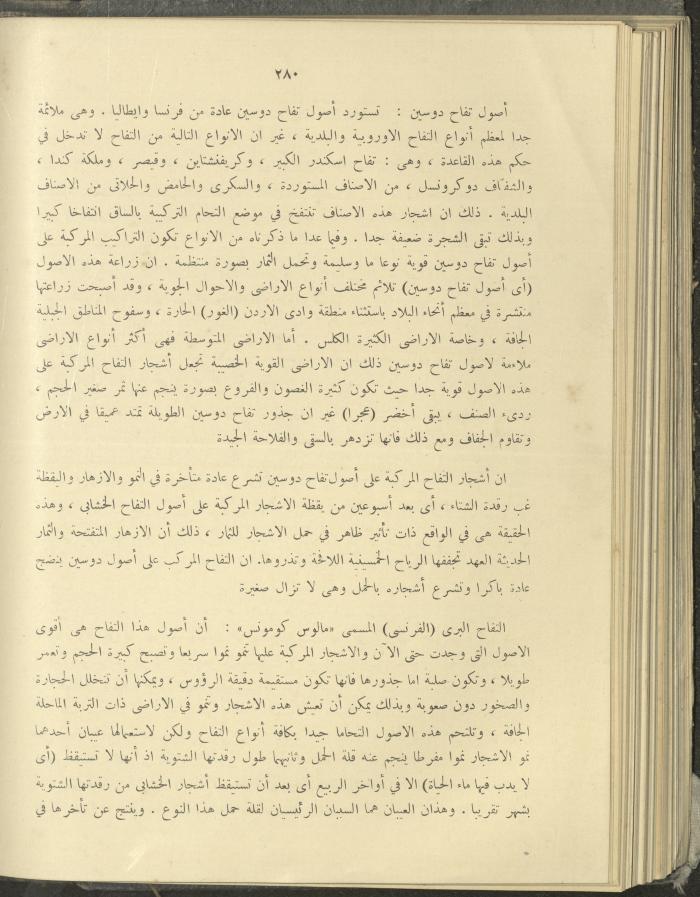 ٢٨٠
أصول تفاح دوسين : تستورد أصول تفاح دوسين عادة من فرنسا وايطاليا . وهى ملائمة
جدا لمعظم أنواع التفاح الاوروبية والبلدية ، غير ان الانواع التالية من التفاح لا تدخل في
حكم هذه القاعدة ، وهى : تفاح اسكندر الكبير ، وكريفنشتاين ، وقيصر ، وملكة كندا ،
والشفاف دوكرونسل ، من الاصناف المستوردة ، والسكرى والحامض والحلاتى من الاصناف
البلدية . ذلك ان اشجار هذه الاصناف تنتفخ في موضع التحام التركيبة بالساق انتفاخا كبيرا
وبذلك تبقى الشجرة ضعيفة جدا . وفيما عدا ما ذكرناه من الانواع تكون التراكيب المركبة على
أصول تفاح دوسين قوية نوعا ما وسليمة وتحمل الثمار بصورة منتظمة . ان زراعة هذه الاصول
(أى أصول تفاح دوسين) تلائم مختلف أنواع الاراضى والاحوال الجوية ، وقد أصبحت زراعتها
منتشرة في معظم أنحاء البلاد باستثناء منطقة وادى الاردن (الغور) الحارة ، وسفوح المناطق الجبلية
الجافة ، وخاصة الاراضى الكثيرة الكلس . أما الاراضى المتوسطة فهى أكثر أنواع الاراضى
ملاءمة لاصول تفاح دوسين ذلك ان الاراضى القوية الخصيبة تجعل أشجار التفاح المركبة على
هذه الاصول قوية جدا حيث تكون كثيرة الغصون والفروع بصورة ينجم عنها ثمر صغير الحجم ،
ردىء الصنف ، يبقى أخضر (عجرا) غير ان جذور تفاح دوسين الطويلة تمتد عميقا في الارض
وتقاوم الجفاف ومع ذلك فانها تزدهر بالسقى والفلاحة الجيدة
ان أشجار التفاح المركبة على أصول تفاح دوسين تشرع عادة متأخرة في النمو والازهار واليقظة
غب رقدة الشتاء ، أى بعد أسبوعين من يقظة الاشجار المركبة على أصول التفاح الخشابى ، وهذه
الحقيقة هى في الواقع ذات تأثير ظاهر في حمل الاشجار للثمار ، ذلك أن الازهار المتفتحة والثمار
الحديثة العهد تجففها الرياح الخمسينية اللافحة وتذروها. ان التفاح المركب على أصول دوسين ينضج
عادة باكرا وتشرع أشجاره بالحمل وهى لا تزال صغيرة
التفاح البرى (الفرنسى) المسمى «مالوس كومونس» : أن أصول هذا التفاح هى أقوى
الاصول التى وجدت حتى الآن والاشجار المركبة عليها تنمو نموا سريعا وتصبح كبيرة الحجم وتعمر
طويلا ، وتكون صلبة اما جذورها فانها تكون مستقيمة دقيقة الرؤوس ، ويمكنها أن تتخلل الحجارة
والصخور دون صعوبة وبذلك يمكن أن تعيش هذه الاشجار وتنمو في الاراضى ذات التربة الماحلة
الجافة ، وتلتحم هذه الاصول التحاما جيدا بكافة أنواع التفاح ولكن لاستعمالها عيبان أحدهما
نمو الاشجار نموا مفرطا ينجم عنه قلة الحمل وثانيهما طول رقدتها الشتوية اذ أنها لا تستيقظ (أى
لا يدب فيها ماء الحياة) الا في أواخر الربيع أى بعد أن تستيقظ أشجار الخشابى من رقدتها الشتوية
بشهر تقريبا . وهذان العيبان هما السببان الرئيسيان لقلة حمل هذا النوع . وينتج عن تأخرها في